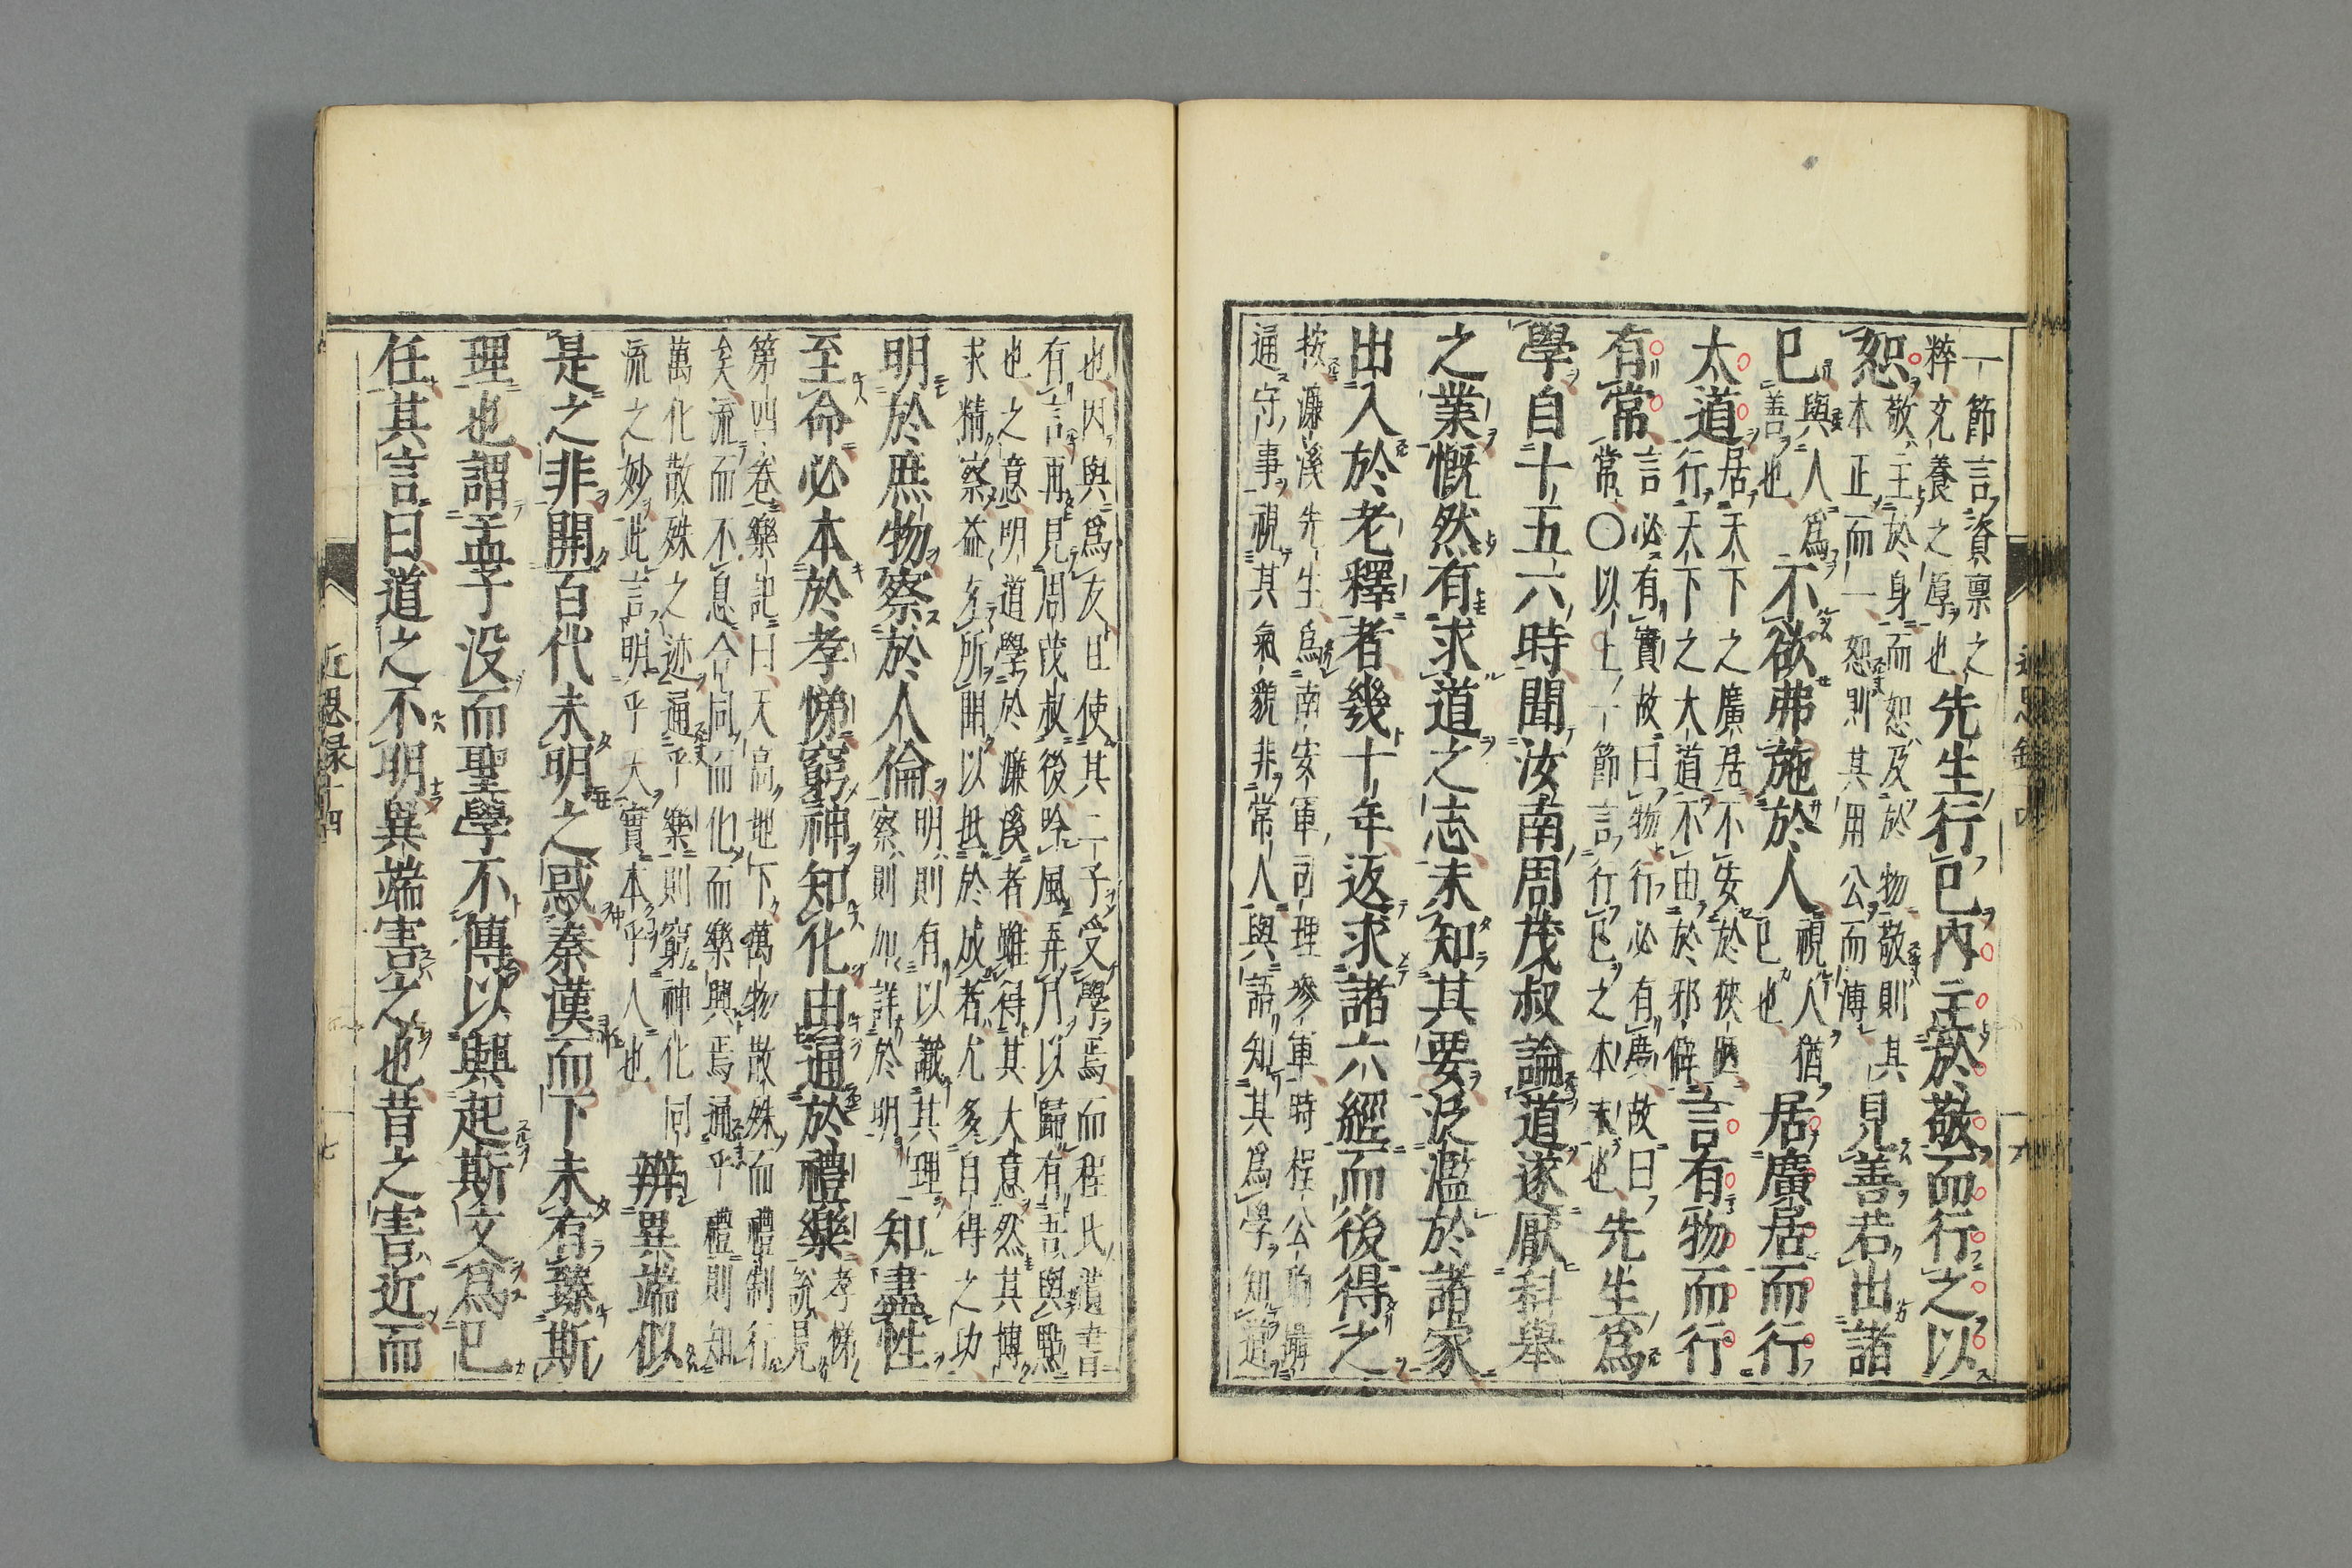 一節言資禀之
粹充養之厚也
先生行已内主於敬而行之以
恕
敬主於身而恕及於物敬則其
本正而一恕則其用公而溥
見善若出諸
已
與人爲
善也
不欲弗施於人
視人猶
已也
居廣居而行
太道
居天下之廣居不安於狹陋
行天下之大道不由於邪僻
言有物而行
有常
言必有實故曰物行必有爲故曰
常○以上一節言行已之本末也
先生爲
學自十五六時聞汝南周茂叔論道遂厭科舉
之業慨然有求道之志未知其要泛濫於諸家
出入於老釋者幾十年返求諸六經而後得之
按濂溪先生爲南安軍司理參軍時程公珦攝
通守事視其氣貌非常人與語知其爲學知道
也因與爲友且使其二子受學焉而程氏遺書
有言再見周茂叔後吟風弄月以歸有吾與點
也之意明道學於濂溪者雖得其大意然其博
求精察益充所聞以抵於成者尤多自得之功
明於庶物察於人倫
明則有以識其理
察則加詳於明
知盡性
至命必本於孝悌窮神知化由通於禮樂
孝悌
說見
第四卷樂記曰天高地下萬物散殊而禮制行
矣流而不息合同而化而樂興焉通乎禮則知
萬化散殊之迹通乎樂則窮神化同
流之妙此言明乎天實本乎人也
辨異端似
是之非開百代未明之惑秦漢而下未有臻斯
理也謂孟子没而聖學不傳以興起斯文爲已
任其言曰道之不明異端害之也昔之害近而
近思録十四
七